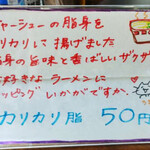 ャーシューの脂身を
カリカリに揚げました
脂身の旨味と香ばしいザクザク
好きな ラーメンに
ッピング いかがですか、
カリカリ脂 50円